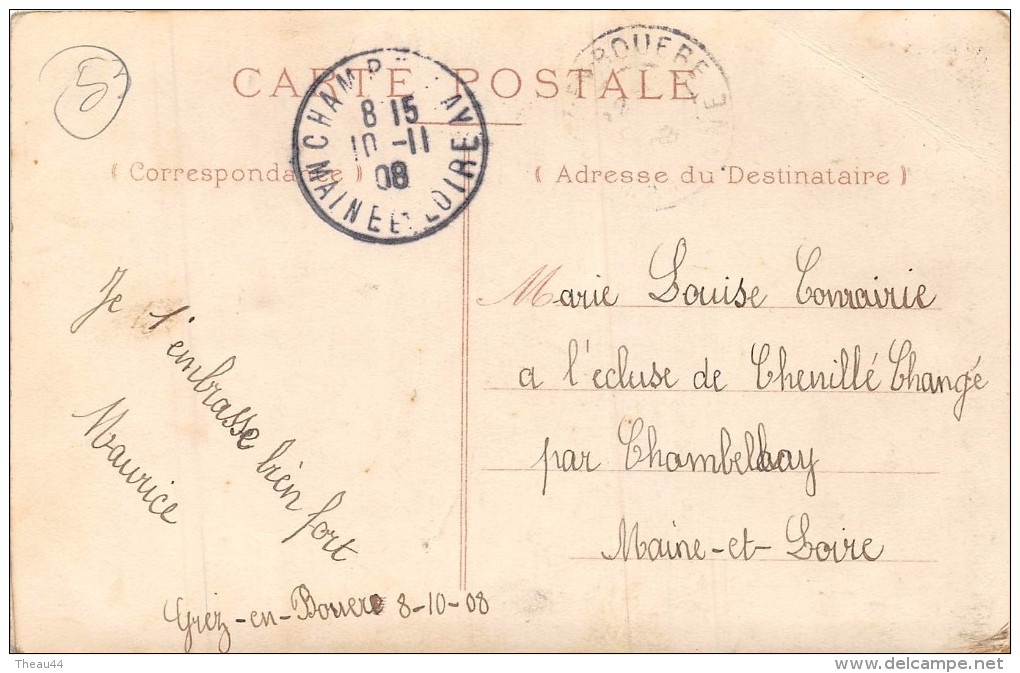 5
CARTE POSTALE
CHAMP AV
8 15
10 -11
08
MAINE ET LOIRE
BOUERE
( Correspondance )
( Adresse du Destinataire )
Je t'embrasse bien fort
Maurice
Grez-en-Bouere 8-10-08
Marie Louise
a l'ecluse de Chenillé Changé
par Chambellay
Maine-et-Loire
Theau44
www.delcampe.net